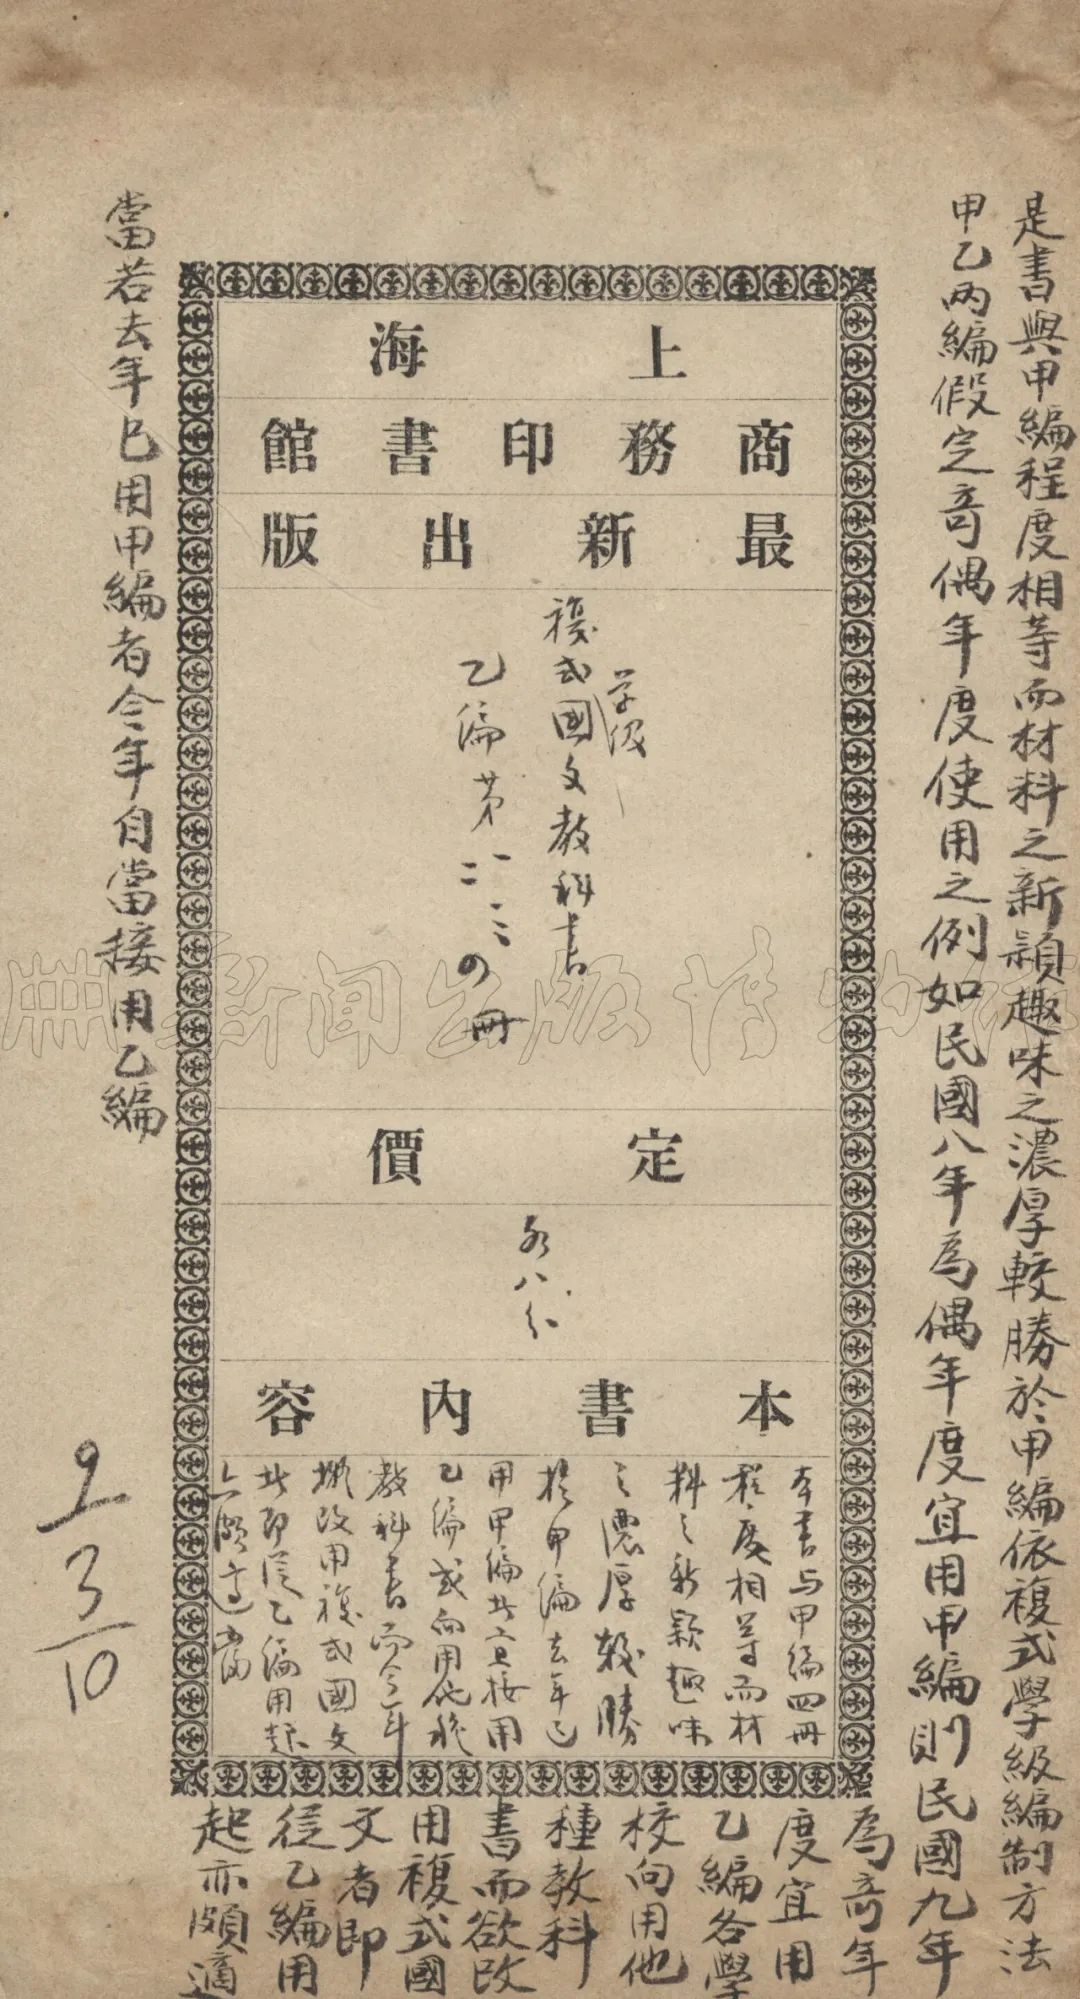 是書與甲編程度相等而材料之新穎趣味之濃厚較勝於甲編依複式學級編制方法
甲乙兩編假定奇偶年度使用之例如民國八年為偶年度宜用甲編則民國九年
為奇年
度宜用
乙編各學
校向用他
種教科
書而欲改
用複式國
文者即
從乙編用
起亦頗適
當若去年已用甲編者今年自當接用乙編
上海
商務印書館
最新出版
学级
複式國文教科書
乙编第一二三四冊
定價
各八分
本書內容
本书与甲编四冊
程度相等而材
料之新颖趣味
之濃厚较勝
於甲编去年已
用甲编者宜接用
乙编或向用他種
教科書而今年
擬改用複式國文
者即從乙编用起
亦頗適當
9
3
10
新聞出版博物館